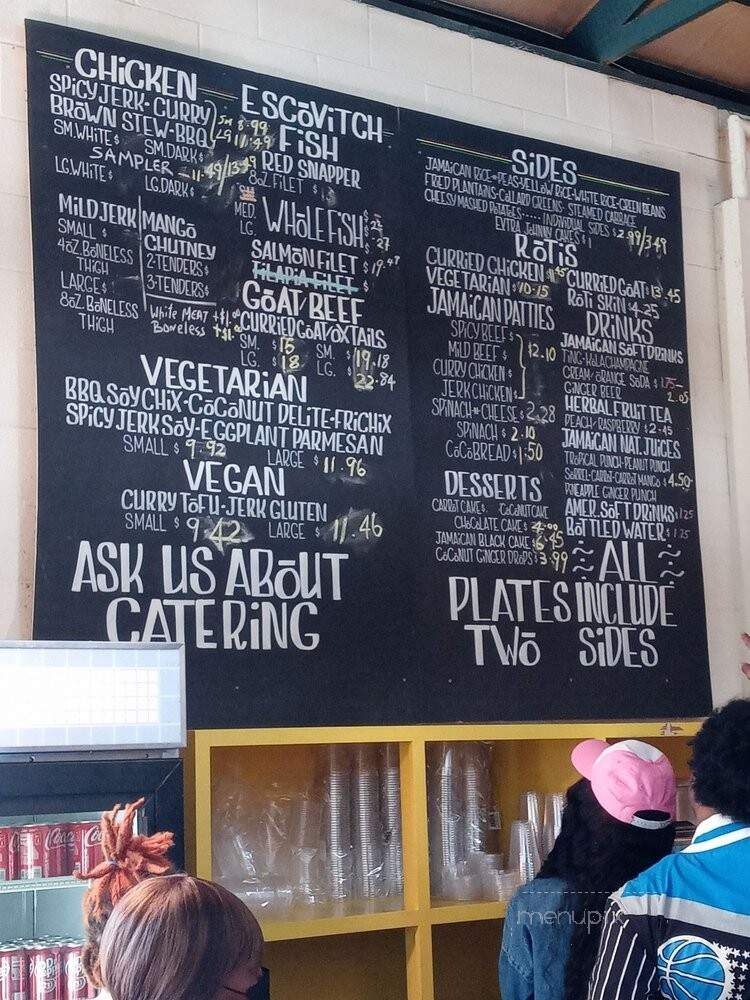 CHICKEN
SPICY JERK-CURRY
BROWN STEW-BBQ
SM 8.99
LG 11.49
SM.WHITE $
SM.DARK $
SAMPLER 11.49/13.49
LG.WHITE $
LG.DARK $
MILD JERK
SMALL $
4OZ BONELESS
THIGH
LARGE $
8OZ BONELESS
THIGH
MANGO
CHUTNEY
2-TENDERS $
3-TENDERS $
White MEAT +$1.00
Boneless
ESCOVITCH
FISH
RED SNAPPER
8OZ. FILET $
MED.
LG.
WHOLE FISH
$ 27
SALMON FILET $ 19.47
TILAPIA FILET
GOAT BEEF
CURRIED GOAT OXTAILS
SM. $ 15 SM. $ 19.18
LG. $ 18 LG. $ 22.84
VEGETARIAN
BBQ SOY CHIX-COCONUT DELITE-FRICHIX
SPICY JERK SOY-EGGPLANT PARMESAN
SMALL $ 9.92 LARGE $ 11.96
VEGAN
CURRY TOFU-JERK GLUTEN
SMALL $ 9.42 LARGE $ 11.46
ASK US ABOUT
CATERING
SIDES
JAMAICAN RICE & PEAS-YELLOW RICE-WHITE RICE-GREEN BEANS
FRIED PLANTAINS-COLLARD GREENS-STEAMED CABBAGE
CHEESY MASHED POTATOES----- INDIVIDUAL SIDES $ 2.99/3.49
EXTRA JOHNNY CAKES $ 1
ROTIS
CURRIED CHICKEN $
VEGETARIAN $ 10.15
CURRIED GOAT $ 13.45
ROTI SKIN $ 4.25
JAMAICAN PATTIES
SPICY BEEF $
MILD BEEF $
CURRY CHICKEN $
JERK CHICKEN $
$ 2.10
SPINACH & CHEESE $ 2.28
SPINACH $ 2.10
COCOBREAD $ 1.50
DRINKS
JAMAICAN SOFT DRINKS
TING-KOLA CHAMPAGNE
CREAM-ORANGE SODA $ 1.75
GINGER BEER 2.05
HERBAL FRUIT TEA
PEACH-RASPBERRY $ 2.45
JAMAICAN NAT. JUICES
TROPICAL PUNCH-PEANUT PUNCH
SORREL-CARROT-CARROT MANGO $ 4.50
PINEAPPLE GINGER PUNCH
AMER. SOFT DRINKS $ 1.25
BOTTLED WATER $ 1.25
DESSERTS
CARROT CAKE $ COCONUT CAKE
CHOCOLATE CAKE $ 4.00
JAMAICAN BLACK CAKE $ 6.45
COCONUT GINGER DROPS $ 3.99
ALL
PLATES INCLUDE
TWO SIDES
menupix